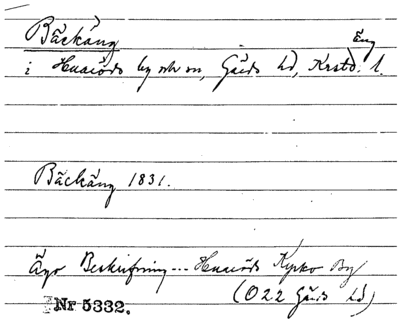 Bäckäng
Äng
i Huaröds by och sn, Gärds hd, Krstd. l.
Bäckäng 1831.
Ägo Beskrifning --- Huaröds Kyrko By
(O22 Gärds hd)
Nr 5332.